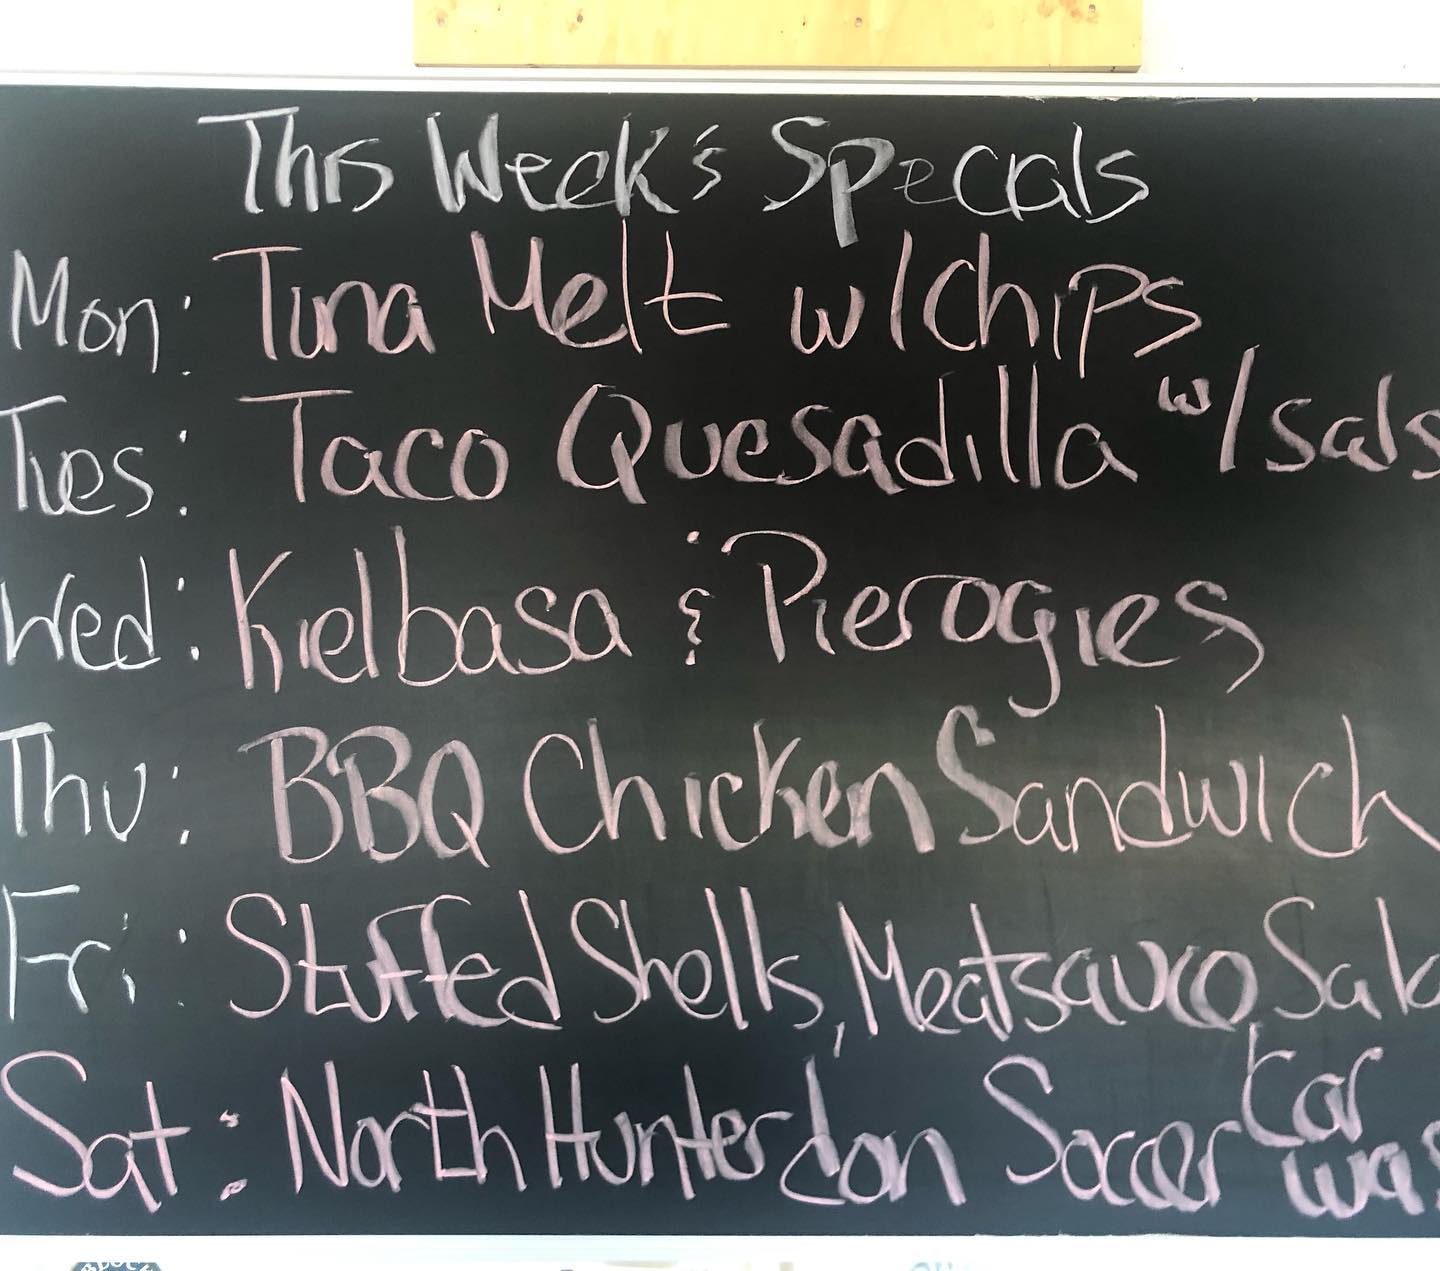 This Week's Specials
Mon: Tuna Melt w/Chips
Tues: Taco Quesadilla w/ sals
Wed: Kielbasa & Pierogies
Thu: BBQ Chicken Sandwich
Fri: Stuffed Shells, Meatsauce Sala
Sat: North Hunterdon Soccer Car was